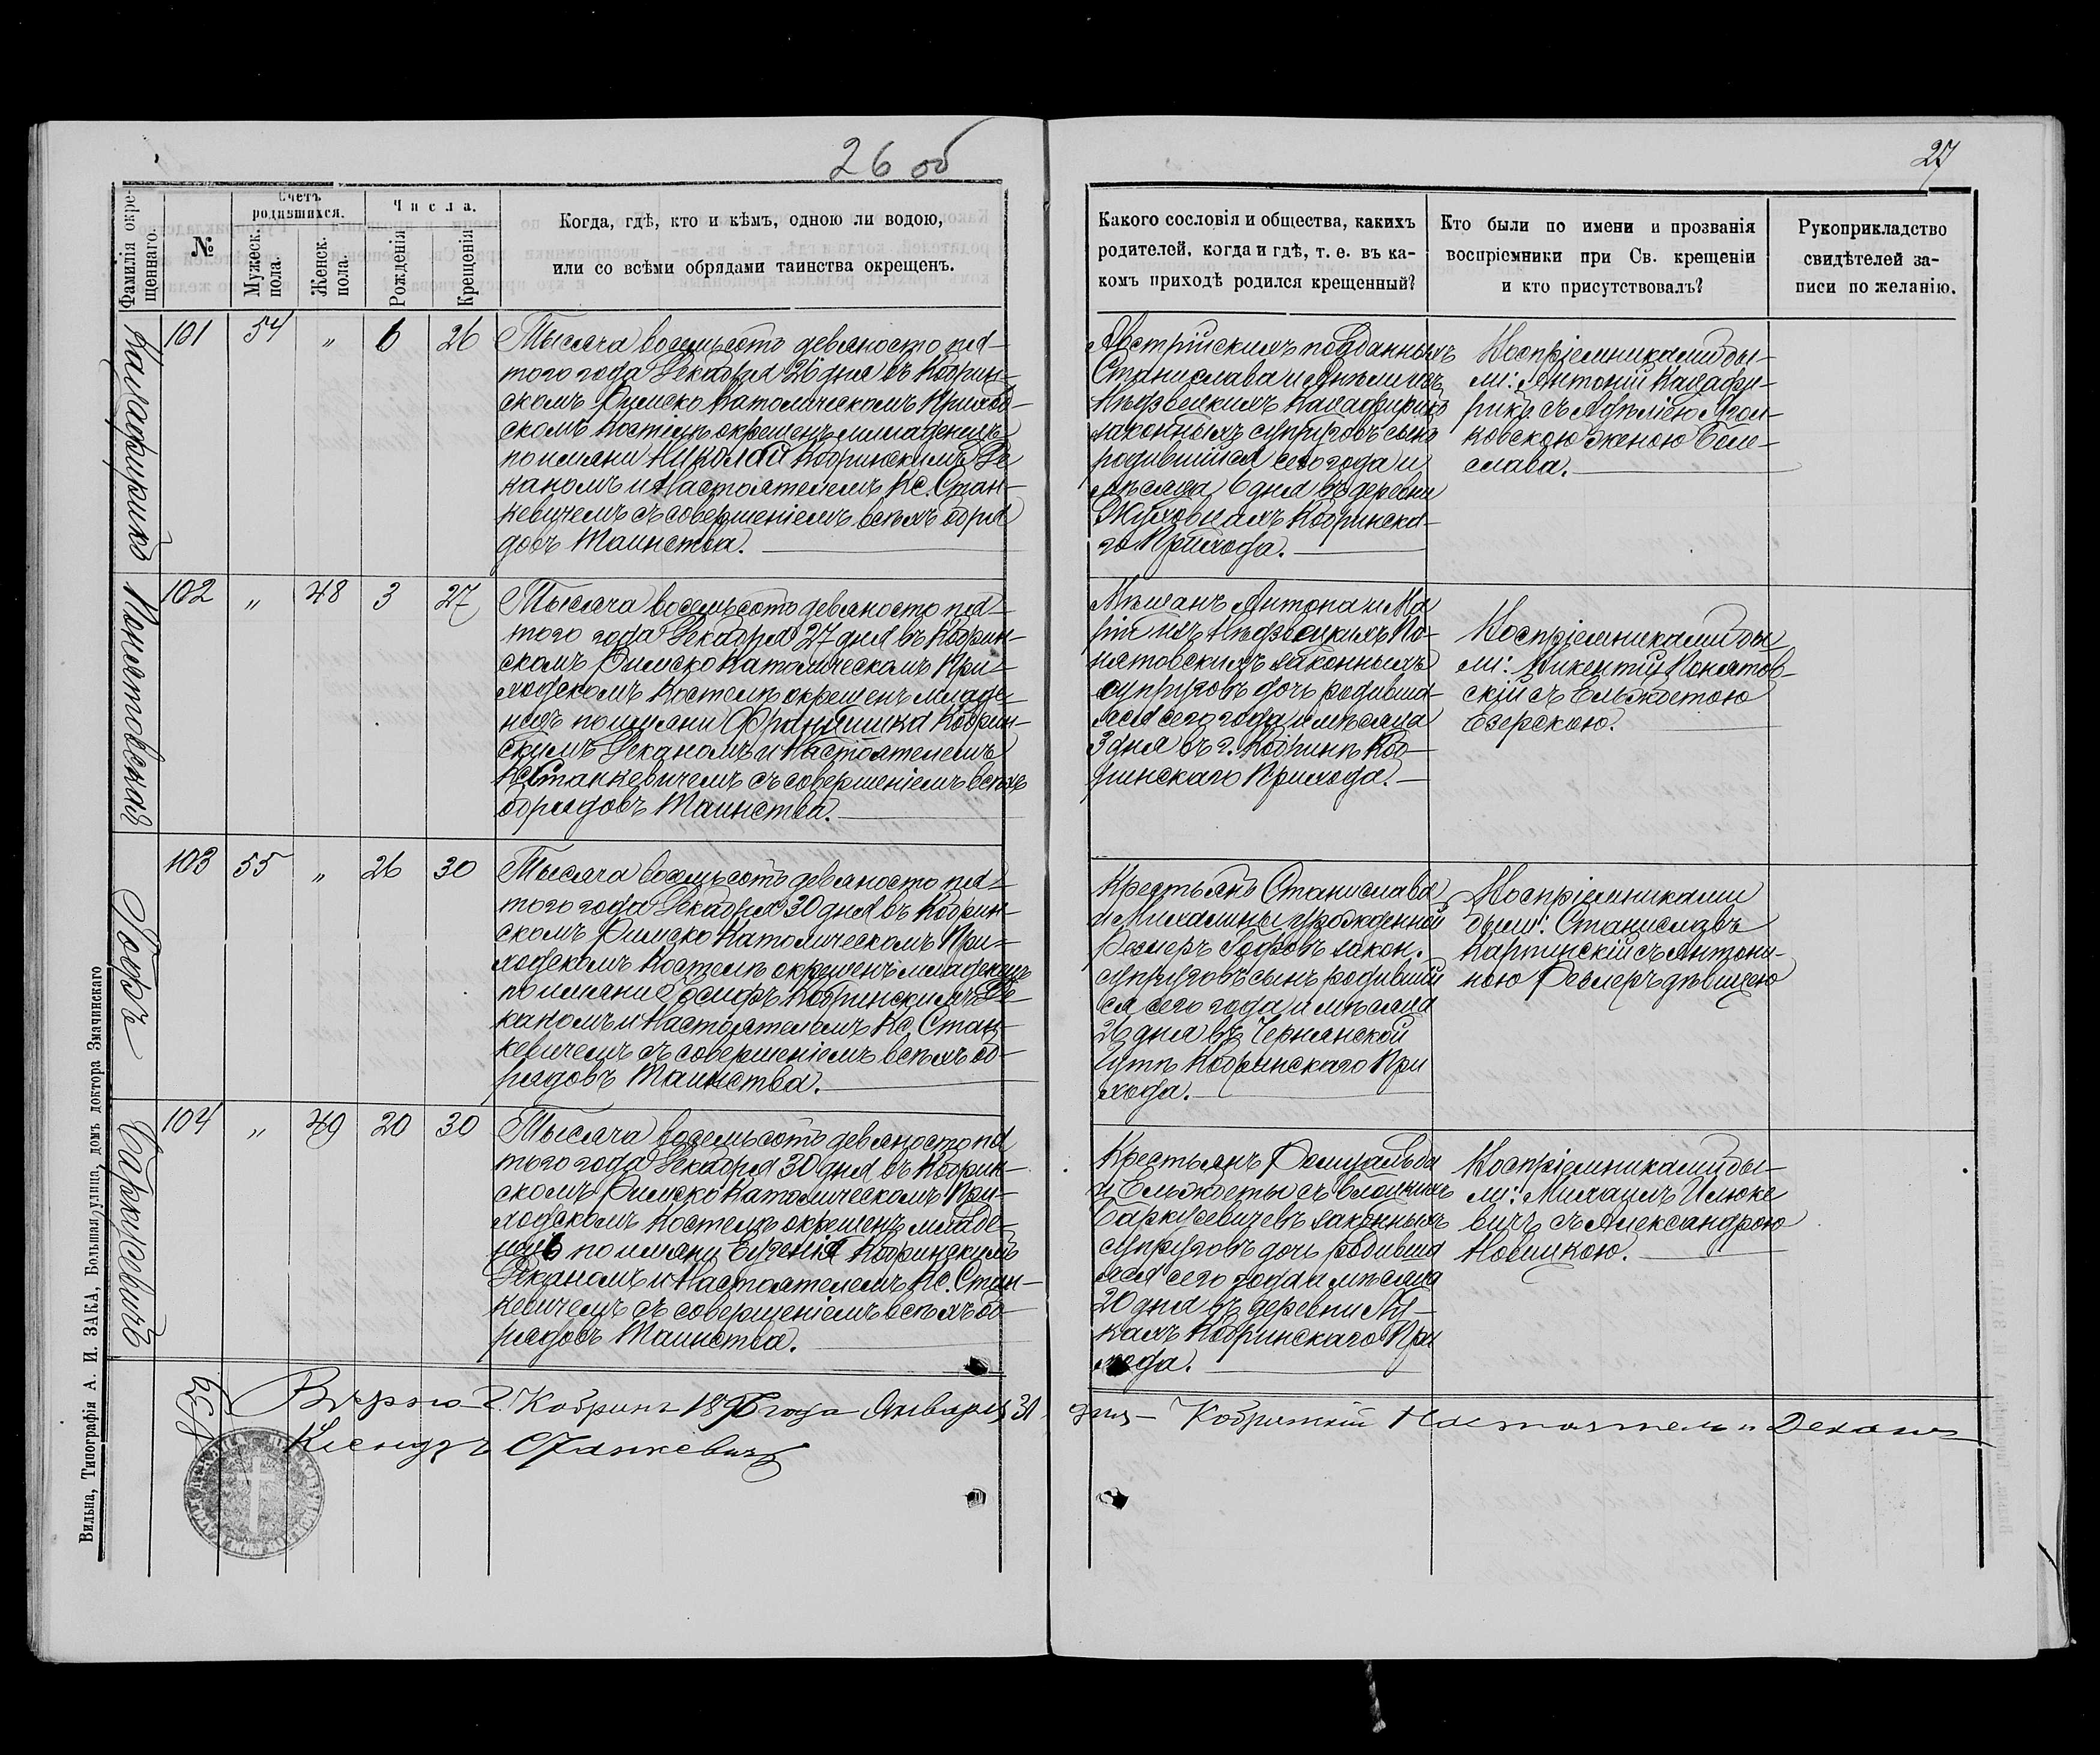 26 об
27
Фамилія окре-
щеннаго.
№
Счетъ
родившихся.
Мужеск.
пола.
Женск.
пола.
Числа.
Рожденія
Крещенія
Когда, гдѣ, кто и кѣмъ, одною ли водою,
или со всѣми обрядами таинства окрещенъ.
Какого сословія и общества, какихъ
родителей, когда и гдѣ, т. е. въ ка-
комъ приходѣ родился крещенный?
Кто были по имени и прозванія
воспріемники при Св. крещеніи
и кто присутствовалъ?
Рукоприкладство
свидѣтелей за-
писи по желанію.
Калафирикъ
101 54 " 6 26
Тысяча восемьсотъ девяносто пя-
того года Декабря 26 дня въ Кобрин-
скомъ Римско Католическомъ Приход-
скомъ Костелѣ окрещенъ младенецъ
по имяни Николай Кобринскимъ Де
каномъ и Настоятелемъ Кс. Стан-
кевичемъ съ совершеніемъ всѣхъ обря
довъ Таинства.
Австрійскихъ подданныхъ
Станислава и
Калафирикъ
законныхъ супруговъ сынъ
родившійся сего года и
мѣсяца 6 дня въ деревни
Кобринска-
го Прихода.
Воспріемниками бы-
ли: Антоній Калафи-
рикъ съ
женою Боле-
слава.
Понятовская
102 " 48 3 27
Тысяча восемьсотъ девяносто пя-
того года Декабря 27 дня въ Кобрин-
скомъ Римско Католическомъ При-
ходскомъ Костелѣ окрещенъ младе-
нецъ по имяни Франишка Кобрин-
скимъ Деканомъ и Настоятелемъ
Кс. Станкевичемъ съ совершеніемъ всѣхъ
обрядовъ Таинства.
Мѣщанъ Антона и Ма
ріи изъ По-
нятовскихъ законныхъ
супруговъ дочь родивша-
яся сего года и мѣсяца
3 дня въ г. Кобринѣ Коб-
ринскаго Прихода.
Воспріемниками бы
ли: Викентій Понятов-
скій съ Ельжбетою
Езерскою.
Гофъ
103 55 " 26 30
Тысяча восемьсотъ девяносто пя-
того года Декабря 30 дня въ Кобрин-
скомъ Римско Католическомъ При-
ходскомъ Костелѣ окрещенъ младенецъ
по имяни Іосифъ Кобринскимъ Де-
каномъ и Настоятелемъ Кс. Стан-
кевичемъ съ совершеніемъ всѣхъ об-
рядовъ Таинства.
Крестьянъ Станислава
и Михалины урожденной
Ремеръ Гофовъ закон.
супруговъ сынъ родивший
ся сего года и мѣсяца
26 дня въ Чернянской
Кобринскаго При
хода.
Воспріемниками
были: Станиславъ
Карпинскій съ Антони-
ною Ремеръ дѣвицею
Баркусевичъ
104 " 49 20 30
Тысяча восемьсотъ девяносто пя
того года Декабря 30 дня въ Кобрин-
скомъ Римско Католическомъ При-
ходскомъ Костелѣ окрещенъ младе-
нецъ по имяни Евгенія Кобринскимъ
Деканомъ и Настоятелемъ Кс. Стан-
кевичемъ съ совершеніемъ всѣхъ об-
рядовъ Таинства.
Крестьянъ Ромуальда
и Ельжбеты съ
Баркусевичевъ законныхъ
супруговъ дочь родивша
яся сего года и мѣсяца
20 дня въ деревни
Кобринскаго При
хода.
Воспріемниками бы-
ли: Михаилъ Илюке
вичъ съ Александрою
Новицкою.
Вѣрно г. Кобринъ 1896 года Января 31 дня Кобринскій Настоятель и Деканъ
Ксендзъ Станкевичъ
Вильна, Типографія А. И. ЗАКА, Большая улица, домъ доктора Змачинскаго